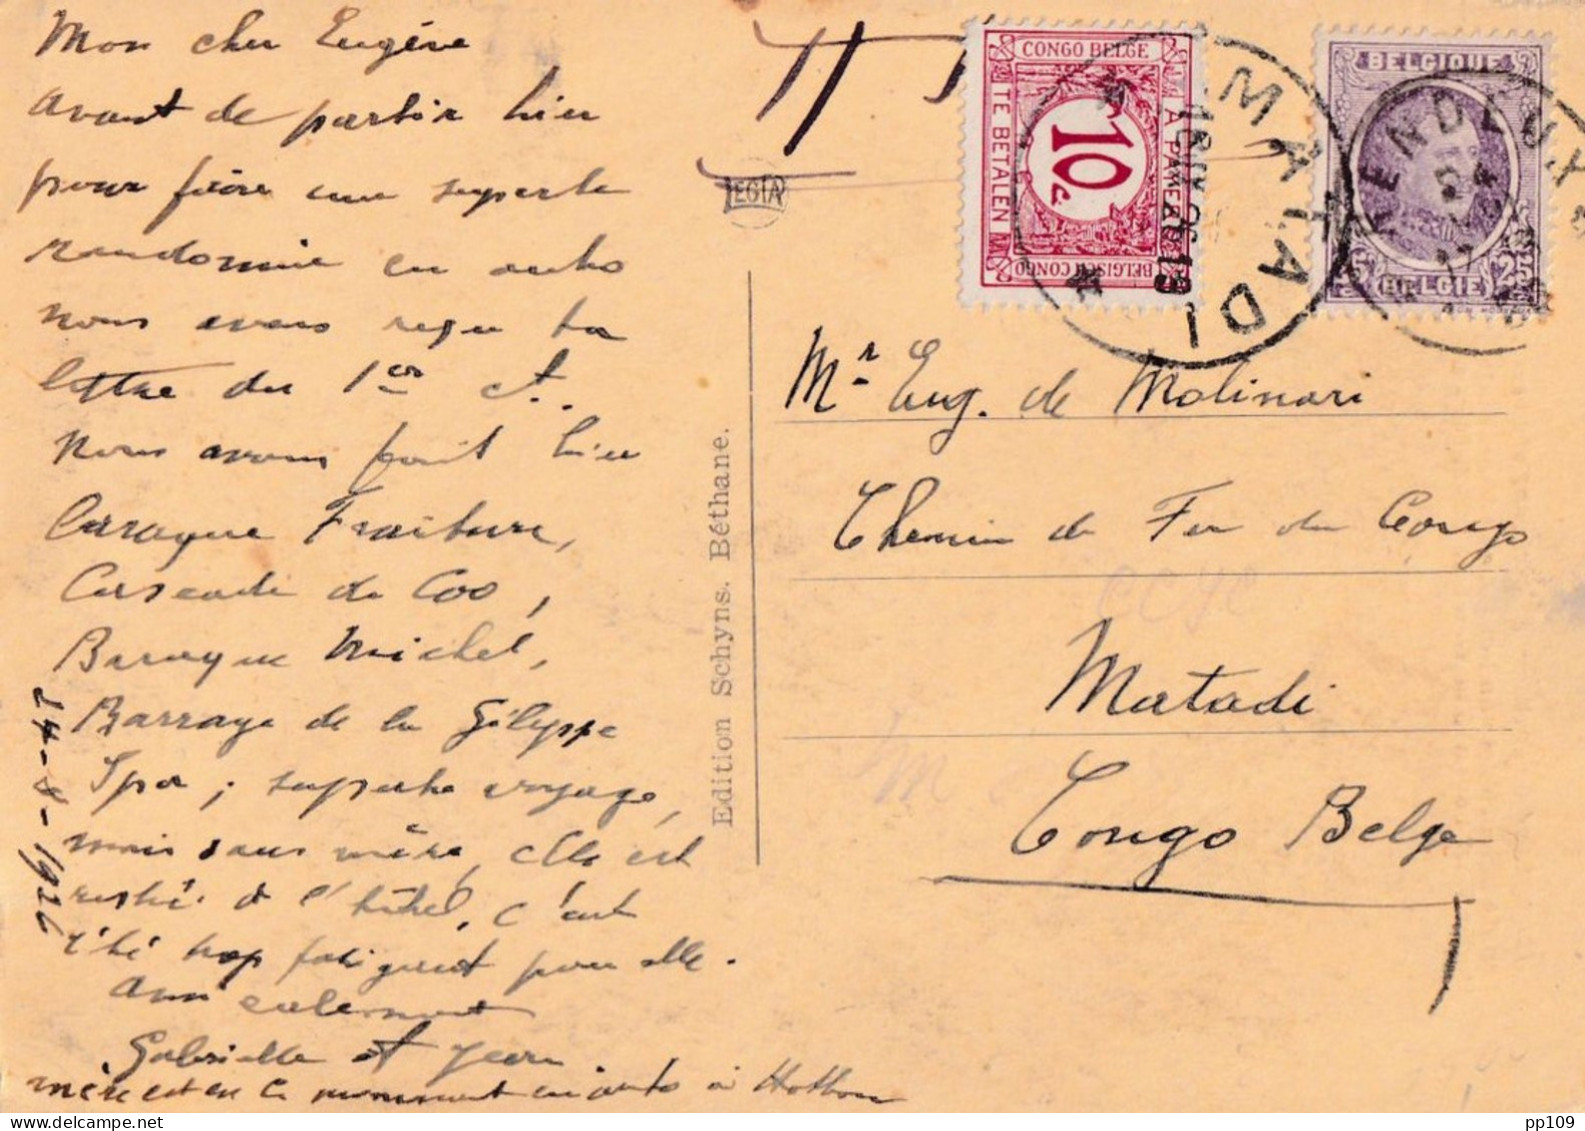 Mon cher Eugène
avant de partir hier
pour faire une superbe
randonnée en auto
nous avons reçu ta
lettre du 1er ct.
Nous avons fait hier
Baraque Fraiture,
Cascade de Coo,
Baraque Michel,
Barrage de la Gileppe
Spa ; superbe voyage,
mais sans mère, elle est
restée à l'hôtel, c'eut
été trop fatiguant pour elle.
Amicalement
Gabrielle et Jean
mère est en ce moment en auto à Hotton
24-8-1926
Edition Schyns. Béthane.
LEGIA
T
CONGO BELGE
A PAYER
TE BETALEN
10 c.
BELGISCH CONGO
MATADI
BELGIQUE
BELGIE
RENDEUX
Mr Eug. de Molinari
Chemin de Fer du Congo
Matadi
Congo Belge
pp109